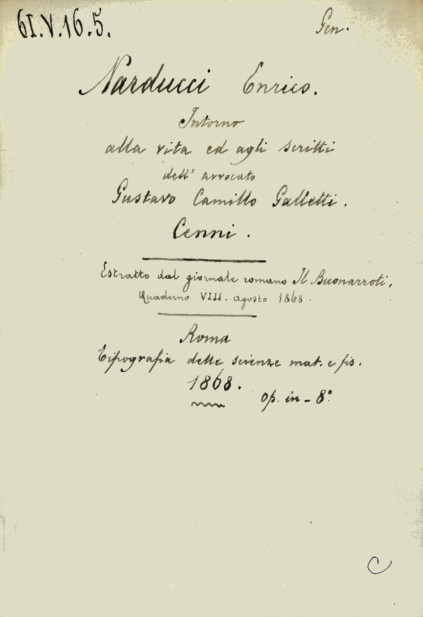 61.V.16.5.
Gen.
Narducci Enrico.
Intorno
alla vita ed agli scritti
dell' avvocato
Gustavo Camillo Galletti.
Cenni.
Estratto dal giornale romano Il Buonarroti,
Quaderno VIII. agosto 1868.
Roma
Tipografia delle scienze mat. e fis.
1868.
op. in-8°
C